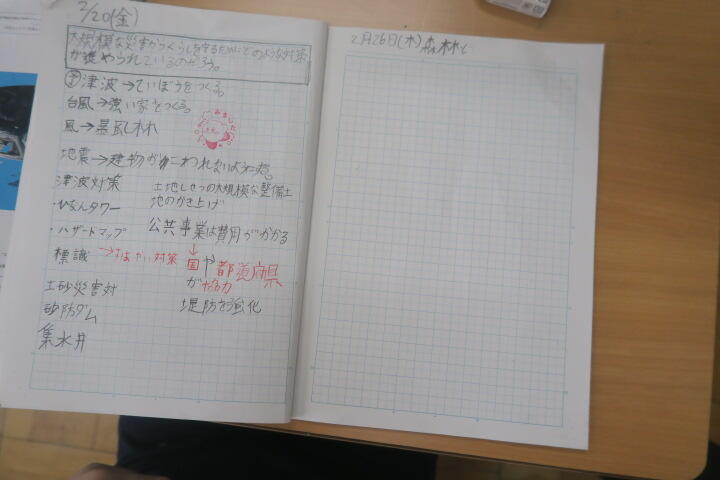 2/20(金)
大規模な災害からくらしを守るためにどのような対策
が進められているのだろう。
予 津波→ていぼうをつくる。
台風→強い家をつくる。
風→暴風林
地震→建物がこわれないように
津波対策
・ひなんタワー
・ハザードマップ
標識→すばやい対策
土砂災害対
砂防ダム
集水井
土地しせつの大規模な整備土
地のかさ上げ
公共事業は費用がかかる
↓
国や都道府県
が協力
堤防を強化
2月26日(木)森林